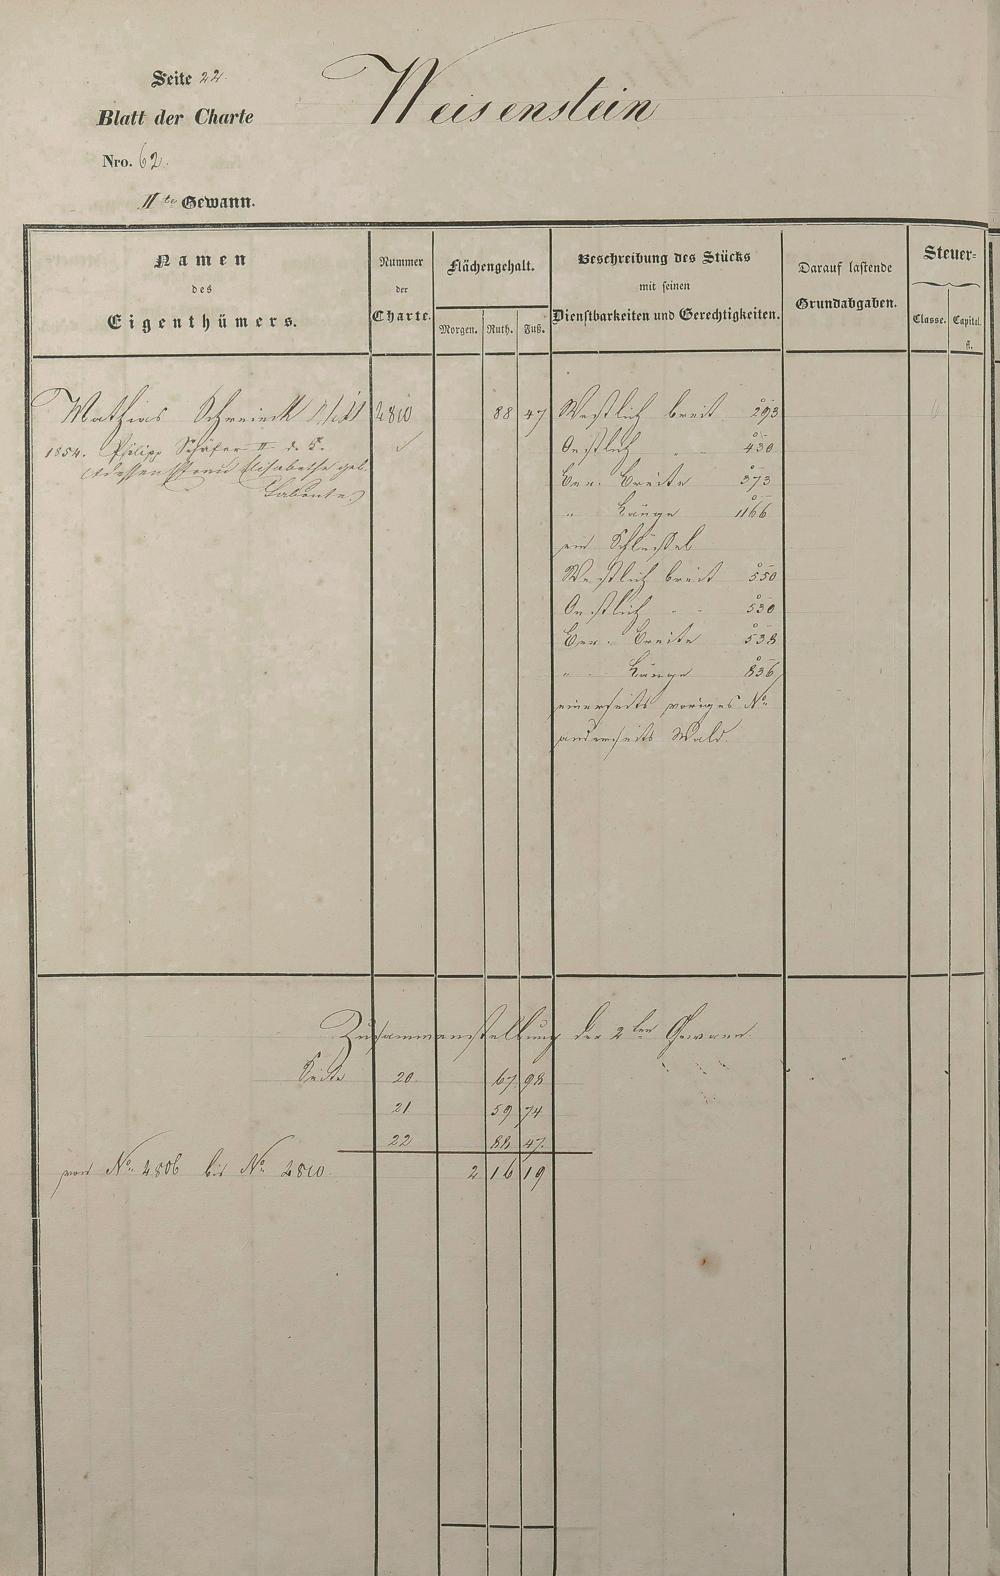 Seite 22.
Weisenstein
Blatt der Charte
Nro. 62.
IIte Gewann.
Namen
des
Eigenthümers.
Nummer
der
Charte.
Flächengehalt.
Morgen. Ruth. Fuß.
Beschreibung des Stücks
mit seinen
Dienstbarkeiten und Gerechtigkeiten.
Darauf lastende
Grundabgaben.
Steuer-
Classe. Capital.
fl.
Mathias 2810 88 47 Westlich breit 293
1854. Philipp Schäfer II
Oestlich " " 430
dessen Frau Elisabetha geb.
Ber. Breite 373
" Länge 1166
ein Schlüssel
Westlich breit 550
Oestlich " " 530
Ber. Breite 538
" Länge 836
einerseits voriges No.
anderseits Wald.
Zusammenstellung der 2ten Gewann
Seite 20 67 98
21 59 74
22 88 47.
von No. 2806 bis No. 2810. 2 16 19